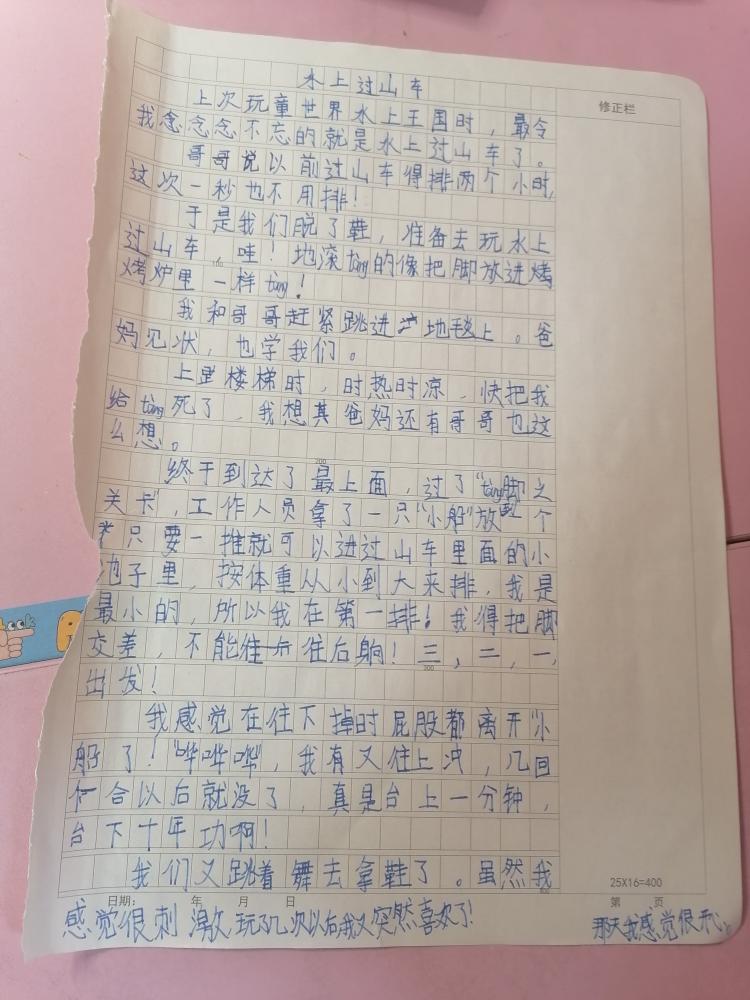 水上过山车
修正栏
上次玩童世界水上王国时，最令
我念念念不忘的就是水上过山车了。
哥哥说以前过山车得排两个小时，
这次一秒也不用排！
于是我们脱了鞋，准备去玩水上
过山车，哇！地滚tàng的像把脚放进烤
100
烤炉里一样tàng！
我和哥哥赶紧跳进地毯上。爸
妈见状，也学我们。
上楼梯时，时热时凉，快把我
给tàng死了，我想其爸妈还有哥哥也这
么想。
200
终于到达了最上面，过了“tàng脚之
关卡”，工作人员拿了一只“小船”放到一个
只要一推就可以进过山车里面的小
池子里，按体重从小到大来排，我是
最小的，所以我在第一排！我得把脚
交差，不能往往后躺！三，二，一，
300
出发！
我感觉在往下掉时屁股都离开“小
船”了！“哗哗哗”，我有又往上冲，几回
合以后就没了，真是台上一分钟，
台下十年功啊！
我们又跳着舞去拿鞋了。虽然我
400
25X16=400
日期： 年 月 日
第 页
感觉很刺激，玩了几次以后我又突然喜欢了！
那天我感觉很开心。